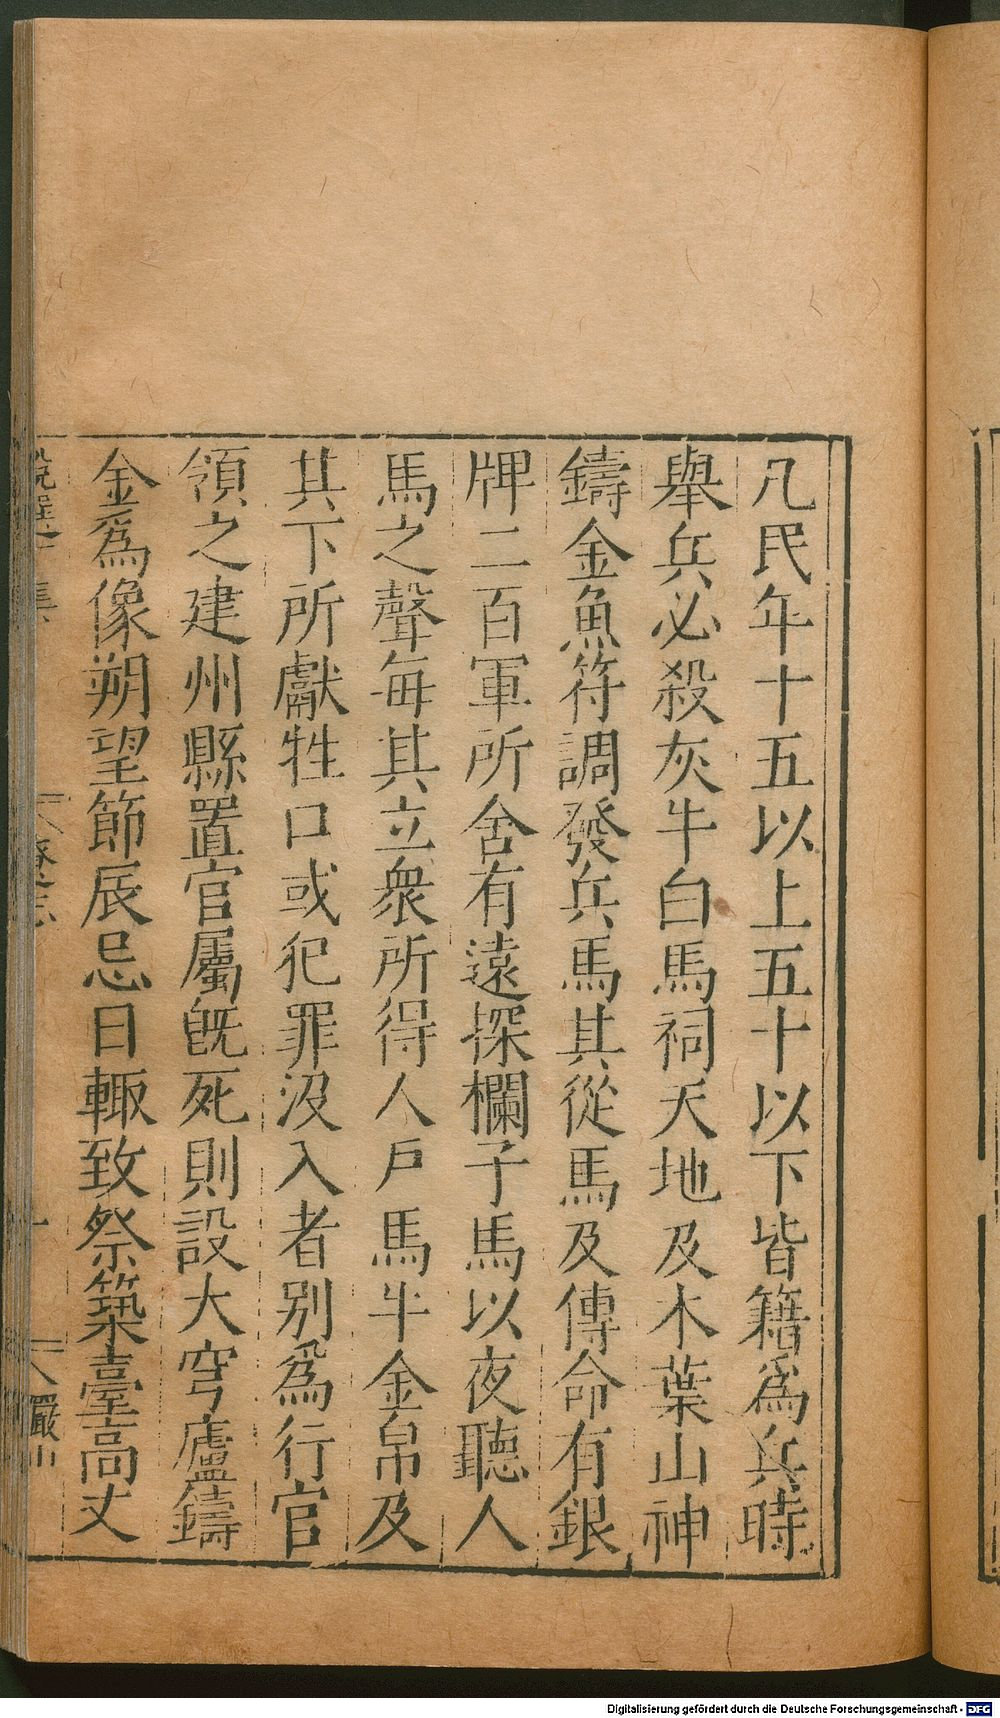 凡民年十五以上五十以下皆籍爲兵時
舉兵必殺灰牛白馬祠天地及木葉山神
鑄金魚符調發兵馬其從馬及傳命有銀
牌二百軍所舍有遠探欄子馬以夜聽人
馬之聲每其立衆所得人戶馬牛金帛及
其下所獻牲口或犯罪没入者別爲行官
領之建州縣置官屬旣死則設大穹廬鑄
金爲像朔望節辰忌日輙致祭築臺高丈
Digitalisierung gefördert durch die Deutsche Forschungsgemeinschaft - DFG